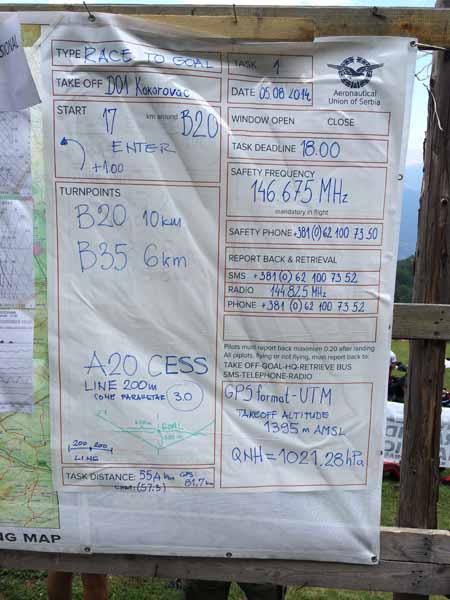 TYPE RACE TO GOAL
TAKE OFF D01 Kokorovac
START 17 km around B20
ENTER
+1.00
TURNPOINTS
B20 10km
B35 6km
A20 CESS
LINE 200m
CONE PARAMETAR 3.0
GOAL
200 200
LINE
TASK DISTANCE: 55,4 km GPS
(57.3) 81.7 km
TASK 1
DATE 05 08 2014
Aeronautical
Union of Serbia
WINDOW OPEN CLOSE
TASK DEADLINE 18.00
SAFETY FREQUENCY
146.675 MHz
mandatory in flight
SAFETY PHONE +381(0)62 100 73 50
REPORT BACK & RETRIEVAL
SMS +381 (0) 62 100 73 52
RADIO 144.825 MHz
PHONE +381 (0) 62 100 73 52
Pilots must report back maximum 0:20 after landing
All piplots, flying or not flying, must report back to:
TAKE OFF-GOAL-HQ-RETRIEVE BUS
SMS-TELEPHONE-RADIO
GPS format-UTM
TAKEOFF ALTITUDE
1395 m AMSL
QNH = 1021.28 hPa
NG MAP